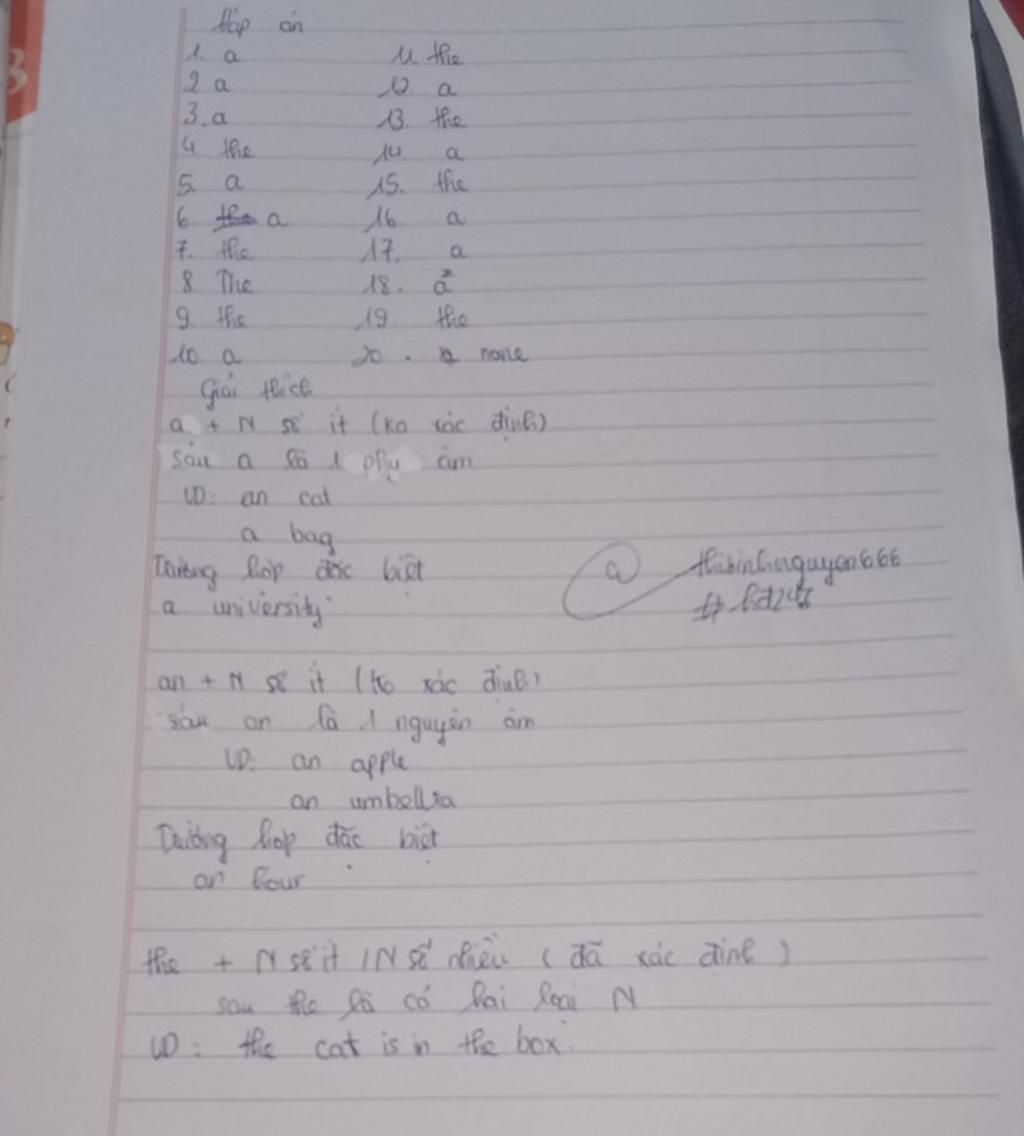 Đáp án
1. a 11. the
2 a 12. a
3. a 13. the
4 the 14 a
5. a 15. the
6 the a 16. a
7. the 17. a
8. The 18. a
9. the 19. the
10 a 20. a none
Giải thích
a + N số ít (ko xác định)
sau a là 1 phụ âm
VD: an cat
a bag
Trường hợp đặc biệt
a university
@ thibinhnguyen666
# hđ247
an + N số ít (ko xác định)
sau an là 1 nguyên âm
VD: an apple
an umbellra
Trường hợp đặc biệt
an hour
the + N số ít / N số nhiều (đã xác định)
sau the là có hai loại N
VD: the cat is in the box.